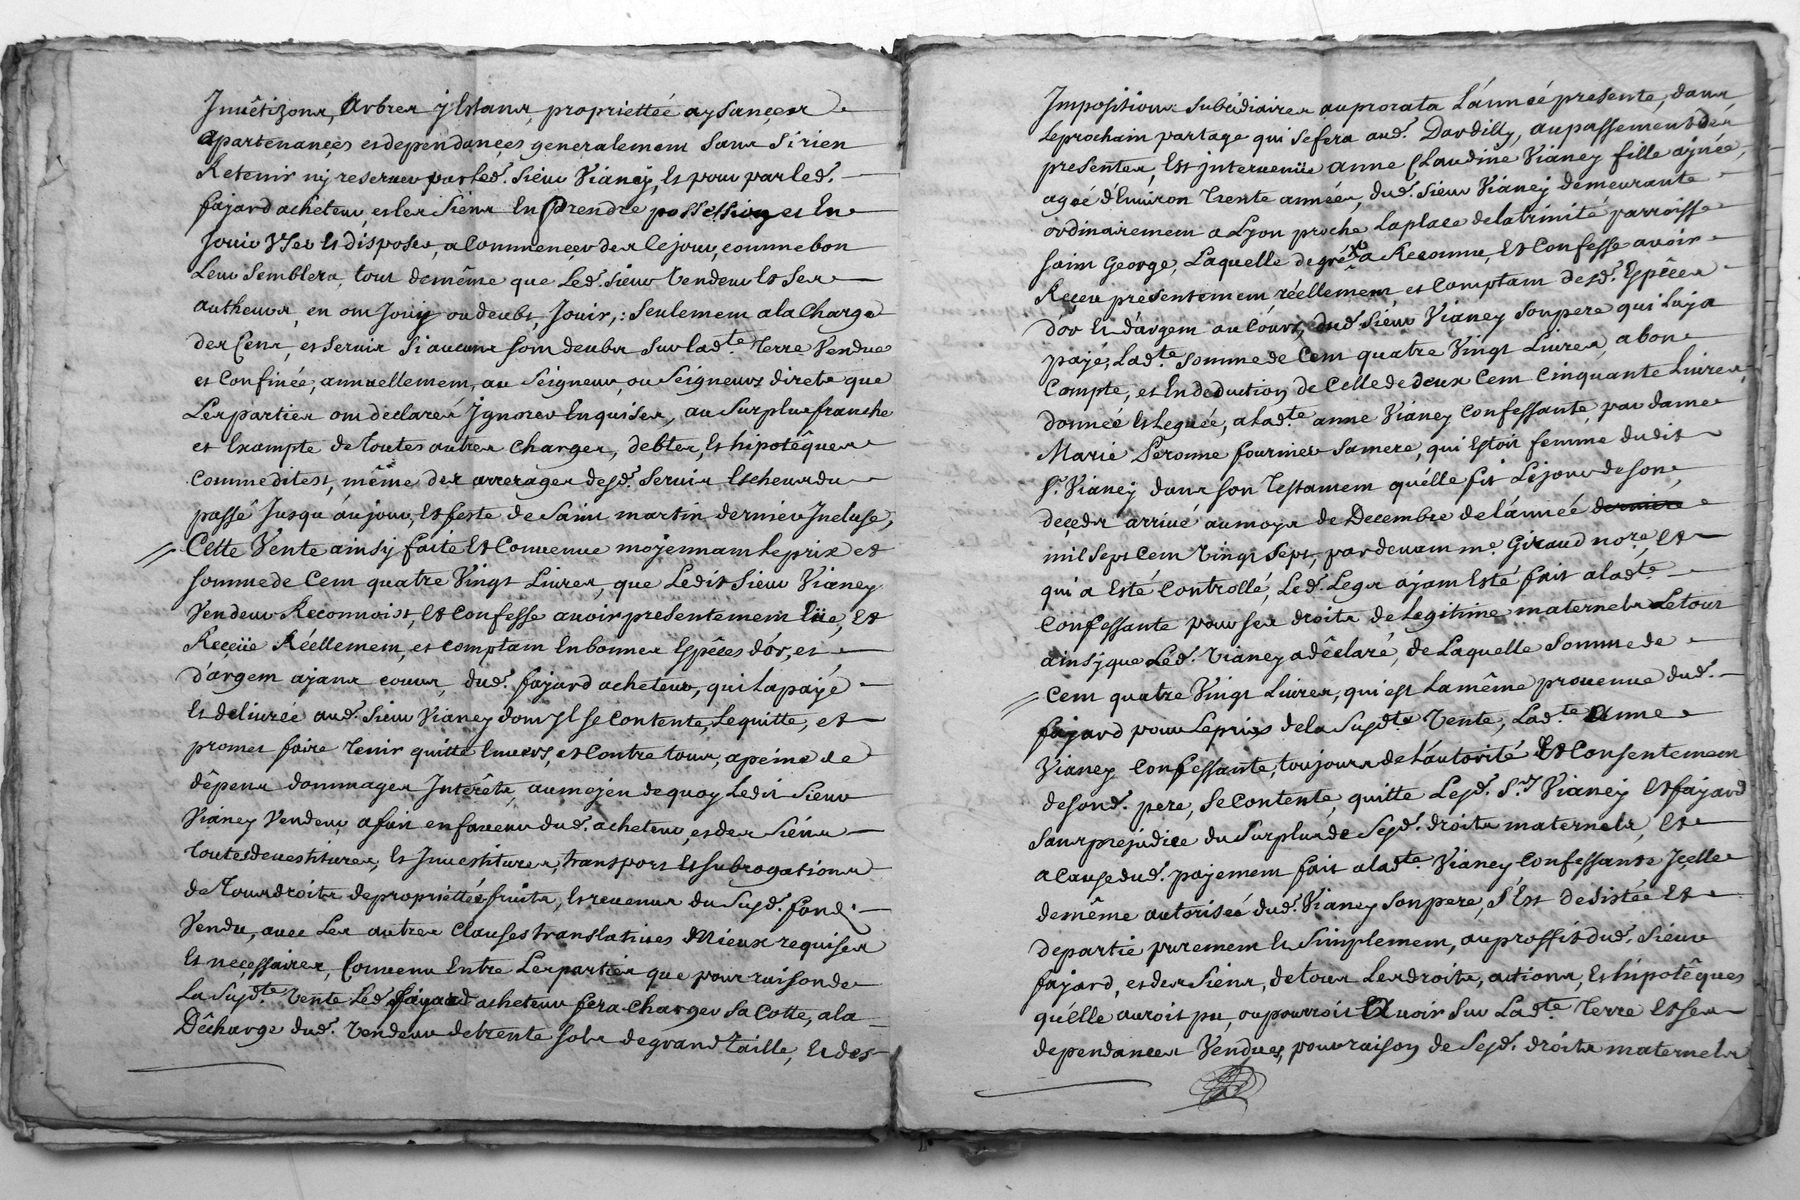 Inuêtizons, Arbres y Estans, proprietteé aysançes
apartenançes et dependançes generalement sans si rien
Retenir ny reseruer par led. Sieur Vianey, Et pour par led.
fajard acheteur et les Siens En prendre possession et En
Jouir Vser Et disposer, a Commençer des ce jour, comme bon
Leur Semblera, tout demême que Led. Sieur Vendeur Et Ses
autheurs, en ont Jouÿ ou deubt, Jouir, : Seulement a la Charge
des Cens, et Seruis Si aucuns sont deubs sur lad.te Terre Vendue
et Confinée, annuellement, au Seigneur, ou Seigneurs directs que
Les parties ont declareé Ignorer Enquises, au Surplus franche
et Exempte de toutes autres Charges, debtes, Et hipotêques
Comme ditest, même des arrerages desd. Seruis Escheus du
passé Jusqu'áu jour, Et feste de Saint martin dernier Incluse,
Cette Vente ainsy faite Et Conuenue moyennant le prix et
somme de Cent quatre Vingt Liures, que Ledit Sieur Vianey
Vendeur Reconnoist, Et Confesse auoir presentement Eüe, Et
Reçeüe Réellement, et comptant En bonnes Espêces d'or, et
d'argent ajans cours, dud. fajard acheteur, qui l'a payé
Et deliurée aud. Sieur Vianey dont Il se Contente, Le quitte, et
promet faire tenir quitte Enuers, et Contre tous, a peine de
dêpens dommages Interêts, au moyen de quoy Ledit Sieur
Vianey Vendeur a fait en faueur dud. acheteur, et des Siéns
toutes deuestitures, Et Inuestitures, transport Et Subrogations
de Tous droits de proprietteé fruits, Et reuenus du Susd. fond
Vendu, auec Les autres Clauses translatiues Mieux requises
Et neçessaires, Conuenu Entre Les parties que pour raison de
La Susd.te Vente Led. fajard acheteur fera Charger Sa Cotte, a la
Dêcharge dud. Vendeur de trente sols de grand Taille, Et des
Impositions Subsidiaires au prorata L'année presente, dans
Le prochain partage qui Se fera aud. Dardilly, au passement des
presentes, Est Interuenüe anne Claudine Vianey fille aynée,
agée d'Enuiron Trente années, dud. Sieur Vianey demeurante
ordinairement a Lyon proche La place de la trinité parroisse
saint George, Laquelle de gré a Reconnu, Et Confesse auoir
Reçeu presentement réellement, et Comptant desd. Espêces
d'or Et d'argent au Cours, dud. Sieur Vianey son pere qui Luy a
payé, Lad.te Somme de Cent quatre Vingt Liures, a bon
Compte, et En deduction de Celle de deux Cent Cinquante Liures,
donnée Et Leguée, a Lad.te anne Vianey Confessante, par dame
Marie Peronne fournier Sa mere, qui Estoit femme dudit
S.r Vianey dans son Testament qu'élle fit Le jour de son
deçeds arriué au moys de Decembre de l'année derniere
mil Sept Cent Vingt Sept, pardeuant me. Giraud no.re, Et
qui a Esté Controllé, Led. Legs ajant Esté fait a lad.te
Confessante pour ses droits de Legitime maternels Le tout
ainsy que Led. Vianey a dêclaré, de Laquelle Somme de
Cent quatre Vingt Liures, qui est La même prouenue dud.
fajard pour Le prix de la Susd.te Vente, Lad.te Anne
Vianey Confessante, toujours de L'áutorité Et Consentement
de sond. pere, Se Contente, quitte Lesd. S.rs Vianey Et fajard
Sans préjudice du Surplus de Sesd. droits maternels, Et
a Cause dud. payement fait a lad.te Vianey Confessante Içelle
demême autorisée dud. Vianey son pere, S'Est dedistée Et
departie purement Et Simplement, au proffit dud. Sieur
fajard, et des Siens, de tous Les droits, actions, Et hipotêques
qu'élle auroit pu, ou pourroit Auoir Sur Lad.te Terre Et Ses
dependances Vendues, pour raison de Sesd. droits maternels